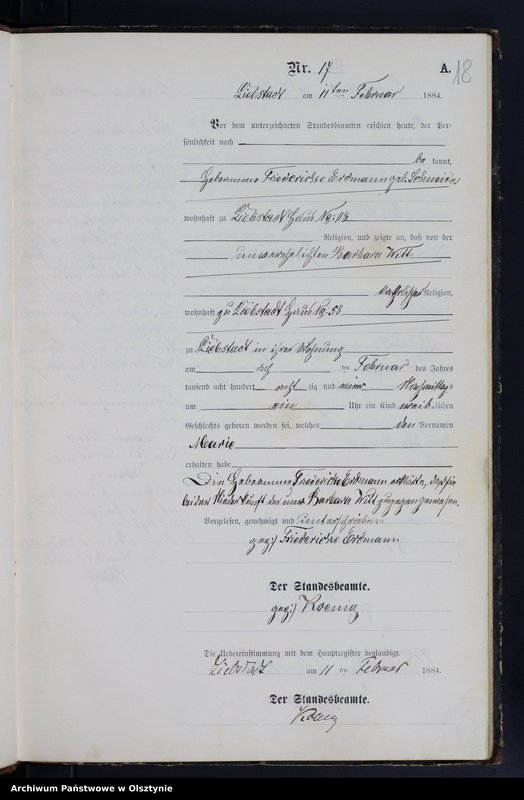 Nr. 17
A.
18
Liebstadt am 11ten Februar 1884.
Vor dem unterzeichneten Standesbeamten erschien heute, der Per-
sönlichkeit nach
be kannt,
Hebeamme Friedericke Erdmann geb. Schneider
wohnhaft zu Liebstadt Haus No:
Religion, und zeigte an, daß von der
unverehelichten Barbara Witt
katholischer Religion,
wohnhaft zu Liebstadt Haus No. 58
zu Liebstadt in ihrer Wohnung
am ten Februar des Jahres
tausend acht hundert acht zig und vier Nachmittags
um ein Uhr ein Kind weib lichen
Geschlechts geboren worden sei, welches den Vornamen
Marie
erhalten habe
Die Hebeamme Friedericke Erdmann erklärte, daß sie
bei der Niederkunft der unv. Barbara Witt zugegen gewesen.
Vorgelesen, genehmigt und unterschrieben
gez:) Friedericke Erdmann
Der Standesbeamte.
gez:) Koenig
Die Uebereinstimmung mit dem Hauptregister beglaubigt.
Liebstadt am 11 ten Februar 1884.
Der Standesbeamte.
Koenig
Archiwum Państwowe w Olsztynie